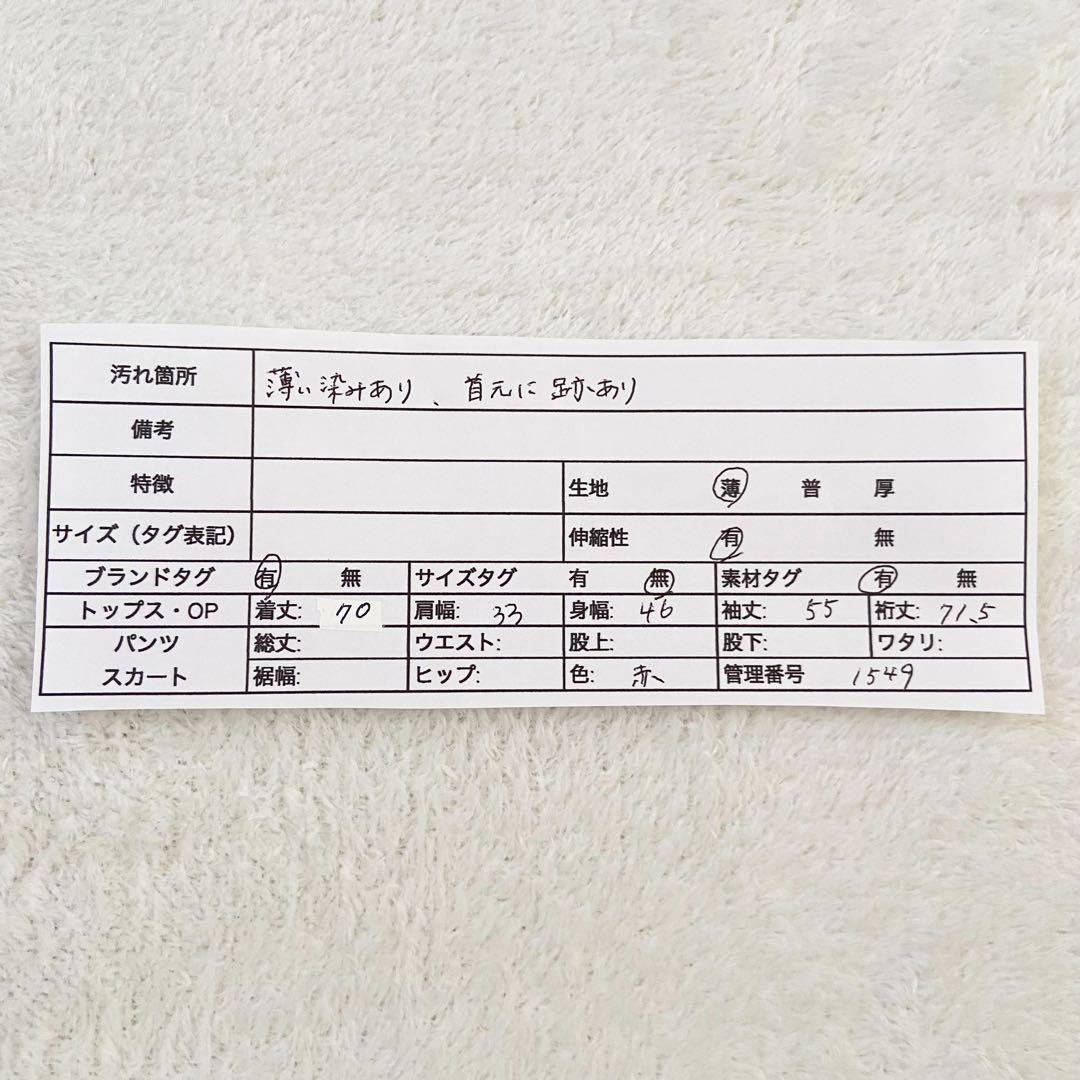 汚れ箇所 薄い染みあり、首元に跡あり
備考
特徴 生地 薄 普 厚
サイズ（タグ表記） 伸縮性 有 無
ブランドタグ 有 無 サイズタグ 有 無 素材タグ 有 無
トップス・OP 着丈: 70 肩幅: 33 身幅: 46 袖丈: 55 裄丈: 71.5
パンツ 総丈: ウエスト: 股上: 股下: ワタリ:
スカート 裾幅: ヒップ: 色: 赤 管理番号 1549